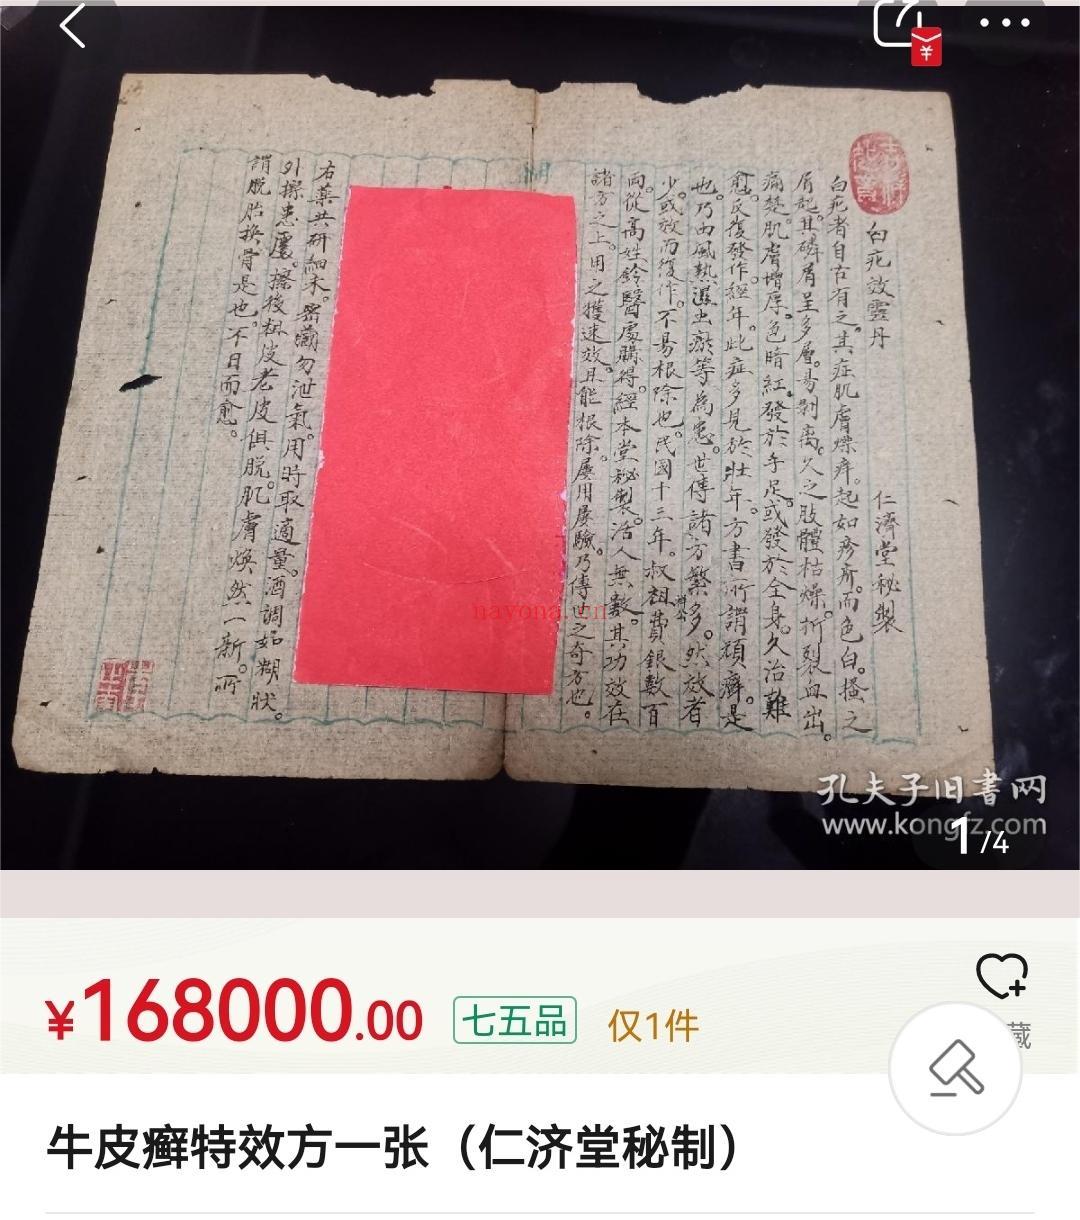 白疕效靈丹 仁濟堂秘製
白疕者自古有之。其症肌膚燥痒。起如疹疥。而色白。搔之
屑起。其磷屑呈多層。易剝离。久之肢體枯燥。折裂血出。
痛楚。肌膚增厚。色暗紅。發於手足。或發於全身。久治難
愈。反復發作。經年。此症多見於壯年。方書所謂頑癬。是
也。乃由風熱濕虫瘀等為患。世傳諸方繁多。然效者
少。或效而復作。不易根除也。民國十三年。叔祖費銀數百
両。從高姓鈴醫處購得。經本堂秘製。活人無數。其功效在
諸方之上。用之獲速效。且能根除。屢用屢驗。乃傳之奇方也。
右藥共研細末。密藏勿泄氣。用時取適量。酒調如糊狀。
外擦患處。擦後粗皮老皮俱脫。肌膚煥然一新。所
謂脫胎換骨是也。不日而愈。
nayona.cn
孔夫子旧書网
www.kongfz.com
1/4
¥168000.00 七五品 仅1件
藏
牛皮癣特效方一张（仁济堂秘制）